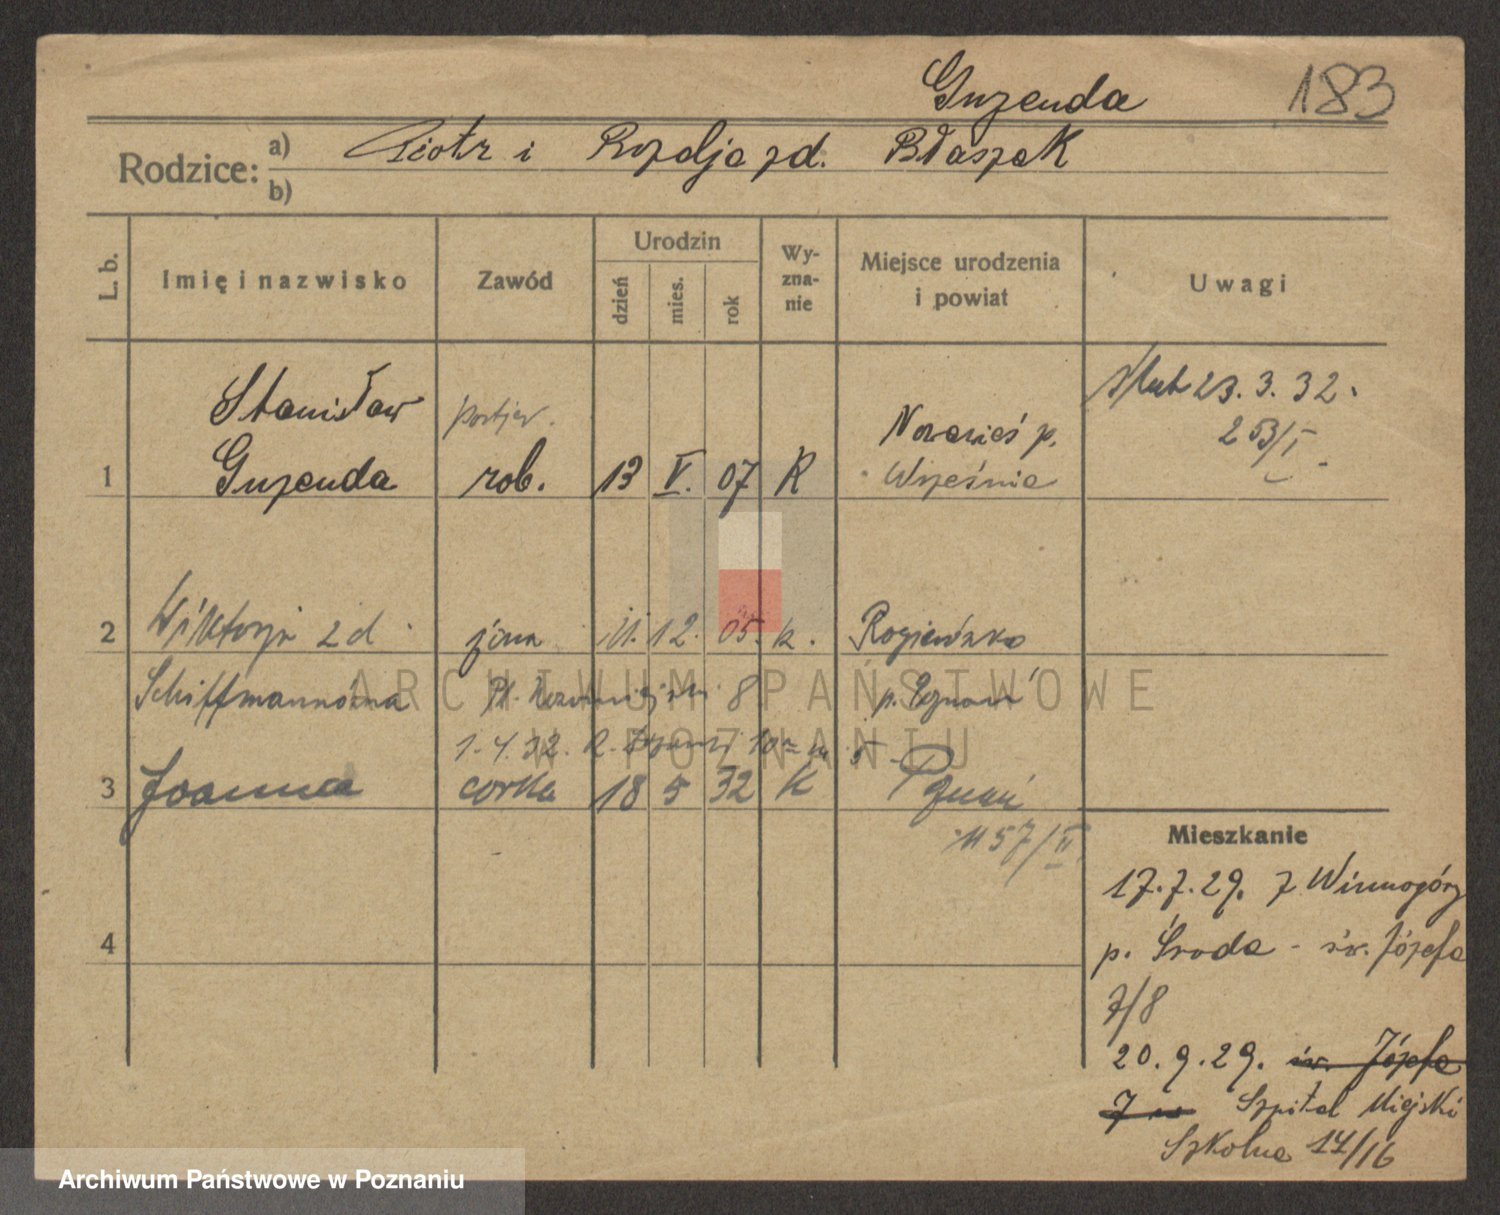 Guzenda 183
Rodzice: a) Piotr i Rozalja zd. Błaszak
b)
L. b. Imię i nazwisko Zawód Urodzin dzień mies. rok Wy-zna-nie Miejsce urodzenia i powiat Uwagi
Stanisław portjer. ślub 23. 3. 32.
Nowawieś p. 253/I
1 Guzenda rob. 13 V. 07 R Września
2 Wiktorja zd żona 11. 12. 05. k.
Schiffmannówna Pl. 8
1. 4. 32. 10 m 5
3 Joanna córka 18 5 32 K Poznań
1157/II
Mieszkanie
17.7.29. z Winnogóry
4
p. Środa - św. Józefa
7/8
20.9.29. św. Józefa
7 Szpital Miejski
Szkolna 14/16
ARCHIWUM PAŃSTWOWE
W POZNANIU
Archiwum Państwowe w Poznaniu